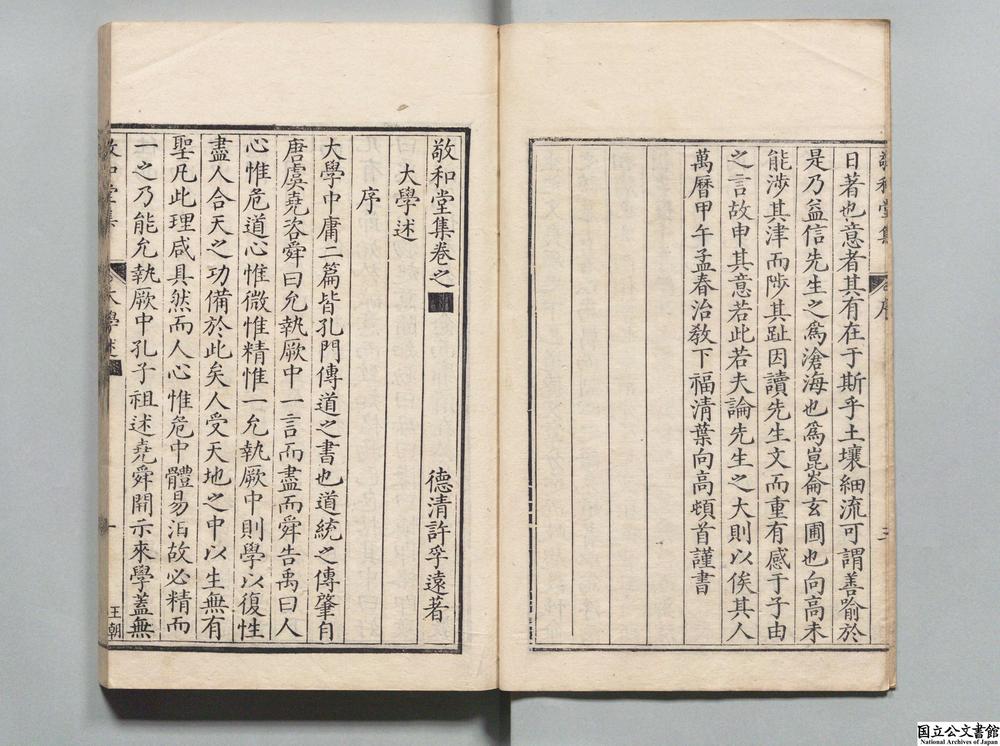 日著也意者其有在于斯乎土壤細流可謂善喻於
是乃益信先生之為滄海也為崑崙玄圃也向高未
能涉其津而陟其趾因讀先生文而重有感于子由
之言故申其意若此若夫論先生之大則以俟其人
萬曆甲午孟春治敎下福清葉向高頓首謹書
三
敬和堂集卷之
大學述
德清許孚遠著
序
大學中庸二篇皆孔門傳道之書也道統之傳肇自
唐虞堯咨舜曰允執厥中一言而盡而舜告禹曰人
心惟危道心惟微惟精惟一允執厥中則學以復性
盡人合天之功備於此矣人受天地之中以生無有
聖凡此理咸具然而人心惟危中體易汩故必精而
一之乃能允執厥中孔子祖述堯舜開示來學蓋無
大學述
一
王朝
国立公文書館
National Archives of Japan